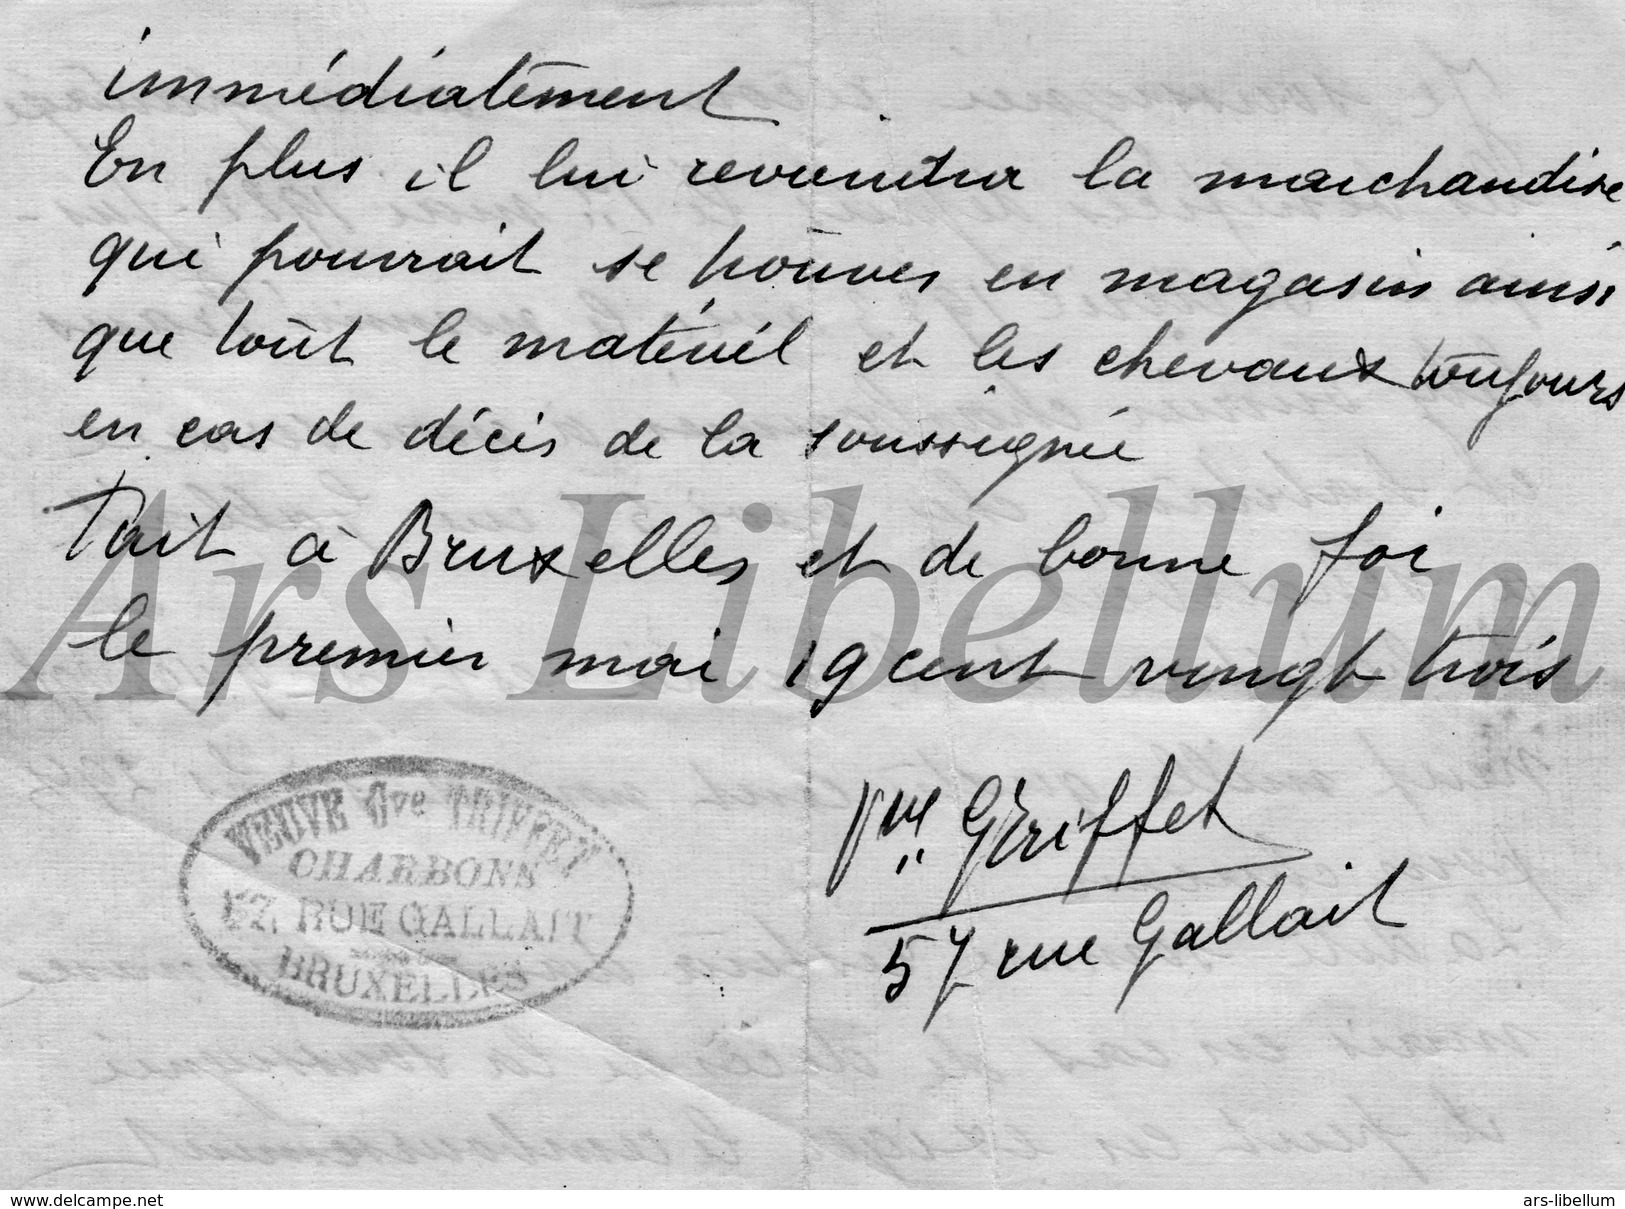 immédiatement
En plus il lui reviendra la marchandise
qui pourrait se trouver en magasin ainsi
que tout le matériél et les chevaux toujours
en cas de décès de la soussignée
Fait à Bruxelles et de bonne foi
le premier mai 19 cent vingt trois
Vve GTriffet
57 rue Gallait
VEUVE Gve TRIFFET
CHARBONS
57, RUE GALLAIT
BRUXELLES
Ars Libellum
www.delcampe.net
ars-libellum